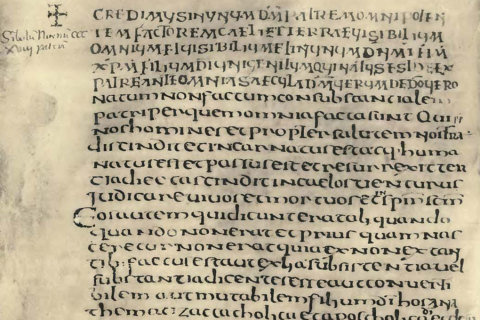 CREDIMUS IN UNUM DM PATREM OMNIPOTEN
TEM FACTOREM CAELI ET TERRAE UISIBILIUM
OMNIUM ET UISIBILIUM ET IN UNUM DNM IHM
XPM FILIUM DI UNIGENITUM QUI NATUS EST DE EX
PATRE ANTE OMNIA SAECULA DM UERUM DE DO UERO
natum non factum consubstancialem
patri per quem omnia facta sunt Qui
nos homines et propter salutem nostra
discindit et incarnatus est
natus est et passus est et resurrexit ter
cia die et ascindit in caelos uenturus
iudicare uiuos et mortuos et in spm
Eos autem qui dicunt erat aliquando
quando non erat et prius quam nas
ceretur non erat quia ex non extan
tib: factus est aut ex subsistentia uel
substantia dicentes esse aut conuerti
bilem aut mutabilem filium di hos ana
themazat catholica et apostolica